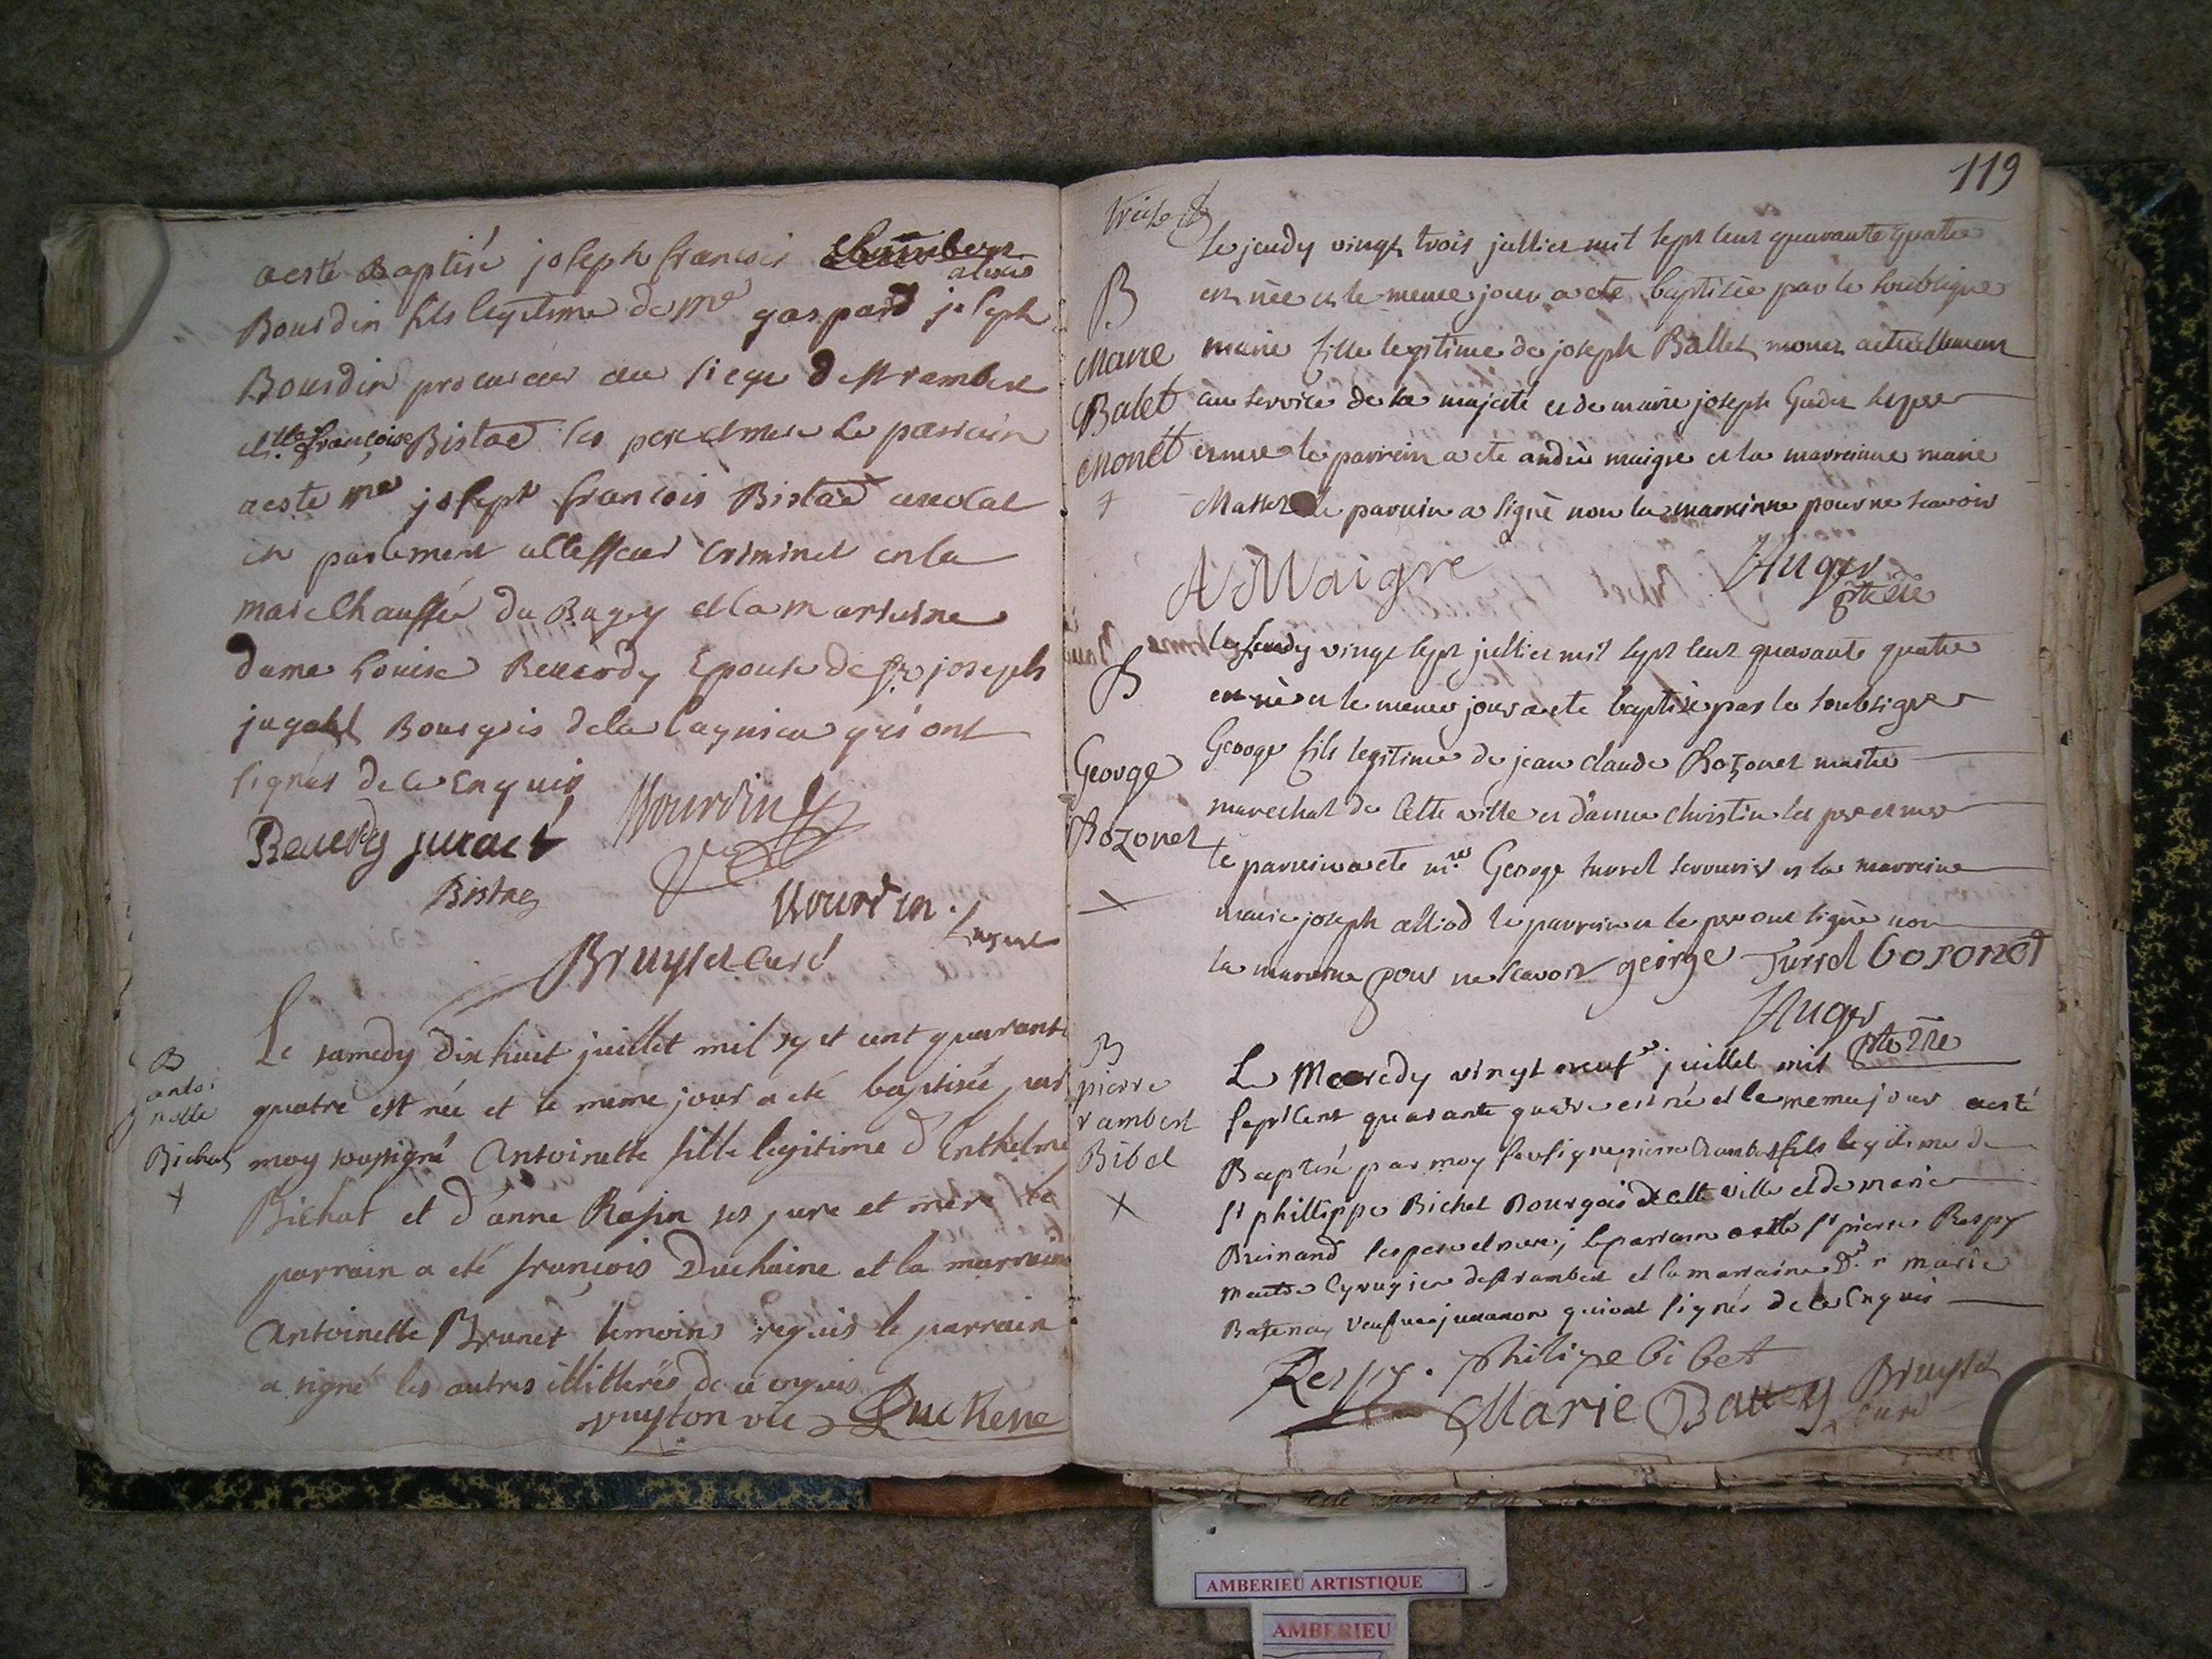 a esté Baptisé joseph francois
Bourdin fils legitime de me gaspard joseph
Bourdin procureur au siege de st rambert
et dlle françoise Bistac ses pere et mere Le parrain
a esté me joseph francois Bistac avocat
en parlement assesseur criminel en la
marechaussée du Bugey et la marreine
dame Louise Reverdy Epouse de sr joseph
Bourgois de la lagnieu qui ont
signés de ce Enquis
Bourdin
Reverdy
Bistac
Bourdin
Bruyset curé
Le samedy dix huit juillet mil sept cent quarante
quatre est née et le meme jour a été baptisée par
moy soussigné Antoinette fille legitime d'Enthelme
Bichat et d'anne Rasin ses pere et mere le
parrain a eté françois Duchaine et la marraine
Antoinette Brunet temoins requis le parrain
a signé les autres illitterés de ce enquis
vuyton vic Duchene
B
antoi
nette
Bichat
+
119
Le jeudy vingt trois julliet mil sept cent quarante quatre
est née et le meme jour a eté baptisée par le soubsigné
marie fille legitime de joseph Ballet monet actuellement
au service de sa majesté et de marie joseph ses pere
et mere le parrein a eté andré maigre et la marreinne marie
le parrein a signé non la marreinne pour ne scavoir
A Maigre
Auger
ptre vre
B
Marie
Balet
Monet
+
Le jeudy vingt sept julliet mil sept cent quarante quatre
est né et le meme jour a eté baptisé par le soubsigné
George fils legitime de jean claude Bozonet maitre
marechal de cette ville et d'anne christin ses pere et mere
le parrein a eté me George turrel serrurier et la marreine
marie joseph alliod le parrein et le pere ont signé non
la marreine pour ne scavoir george Turrel bozonet
Auger
ptre vre
B
George
Bozonet
+
Le Mecredy vingt neuf juillet mil
sept Cent quarante quatre est né et le meme jour a esté
Baptisé par moy sousigné pierre Rambert fils legitime de
sr phillippe Bichel Bourgois de cette ville et de marie
Brinand ses pere et mere; le parrain a esté sr pierre Respy
maitre Cyrugien de st rambert et la marraine marie
qui ont signés de ce Enquis
Respy. philipe bibet
Marie Battey Bruyset
curé
B
pierre
rambert
Bibel
+
AMBERIEU ARTISTIQUE
AMBERIEU